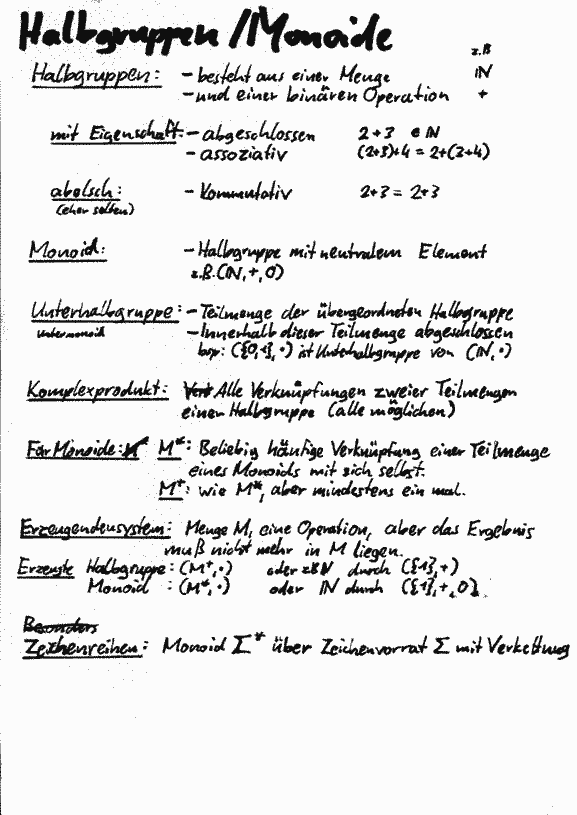 Halbgruppen/Monoide
z.B
Halbgruppen: - besteht aus einer Menge ℕ
- und einer binären Operation +
mit Eigenschaft: - abgeschlossen 2+3 ∈ ℕ
- assoziativ (2+3)+4 = 2+(3+4)
abelsch: - kommutativ 2+3 = 2+3
(eher selten)
Monoid: - Halbgruppe mit neutralem Element
z.B. (ℕ,+,0)
Unterhalbgruppe: - Teilmenge der übergeordneten Halbgruppe
Untermonoid - Innerhalb dieser Teilmenge abgeschlossen
bsp: ({0,1},·) ist Unterhalbgruppe von (ℕ,·)
Komplexprodukt: Alle Verknüpfungen zweier Teilmengen
einer Halbgruppe (alle möglichen)
Für Monoide: M*: Beliebig häufige Verknüpfung einer Teilmenge
eines Monoids mit sich selbst.
M⁺: wie M*, aber mindestens ein mal.
Erzeugendensystem: Menge M, eine Operation, aber das Ergebnis
muß nicht mehr in M liegen.
Erzeugte Halbgruppe: (M⁺,·) oder z.B ℕ durch ({1},+)
Monoid : (M*,·) oder ℕ durch ({1},+,0)
Besonders
Zeichenreihen: Monoid Σ* über Zeichenvorrat Σ mit Verkettung